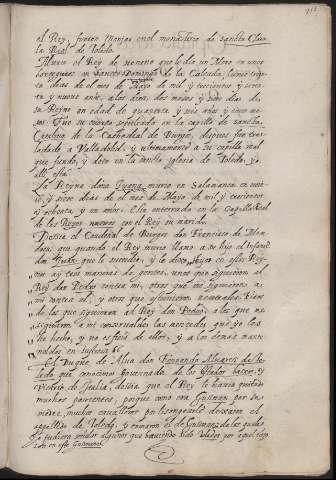 el Rey, fueron Monjas en el monasterio de Sancta Clara
la Real de Toledo.
Murio el Rey de veneno que le dio un Moro en unos
borceguies en Sancto Domingo de la Calçada, lunes treyn-
ta dias de el mes de Mayo de mil y trecientos y seten-
ta y nueve años, a los diez años dos meses y dias de
su Reyno en edad de quarenta y seis años y cinco me-
ses. Fue su cuerpo sepultado en la capilla de Sancta
Catelina de la Cathedral de Burgos, despues fue tras-
ladado a Valladolid, y ultimamente a su capilla real
que fundo, y doto en la Sancta Iglesia de Toledo, y
alli esta.
La Reyna doña Juana murio en Salamanca en vein-
te, y siete dias de el mes de Mayo de mil y trecientos
y ochenta, y un años. Esta enterrada en la Capilla Real
de los Reyes nuevos con el Rey su marido.
Dezia el Cardenal de Burgos don Francisco de Men-
doça, que quando el Rey murio llamo a su hijo el Infante
don Juan que le sucedia, y le dixo. Hijo en este Reyno
ay tres maneras de gentes, unos que siguieron al
Rey don Pedro contra mi, otros que me siguieron a
mi contra el, y otros que estuvieron neutrales. Fiaos
de los que siguieron al Rey don Pedro, a los que me
siguieron a mi conservaldes las mercedes que yo les
he hecho, y no fieis de ellos, y a los demas mante-
neldos en justicia &c.
El Duque de Alva don Fernando Alvarez de To-
ledo que conocimos Governador de los Estados baxos, y
Victorio de Italia, dezia que el Rey le havia quitado
muchos parientes, porque como era Guzman por su
madre, muchos cavalleros por lisongearle dexaron el
apellido de Toledo, y tomaron el de Guzman, de los quales
se pudieran señalar algunos que haviendo sido Toledos por aquel tiempo
son en este Guzmanes.